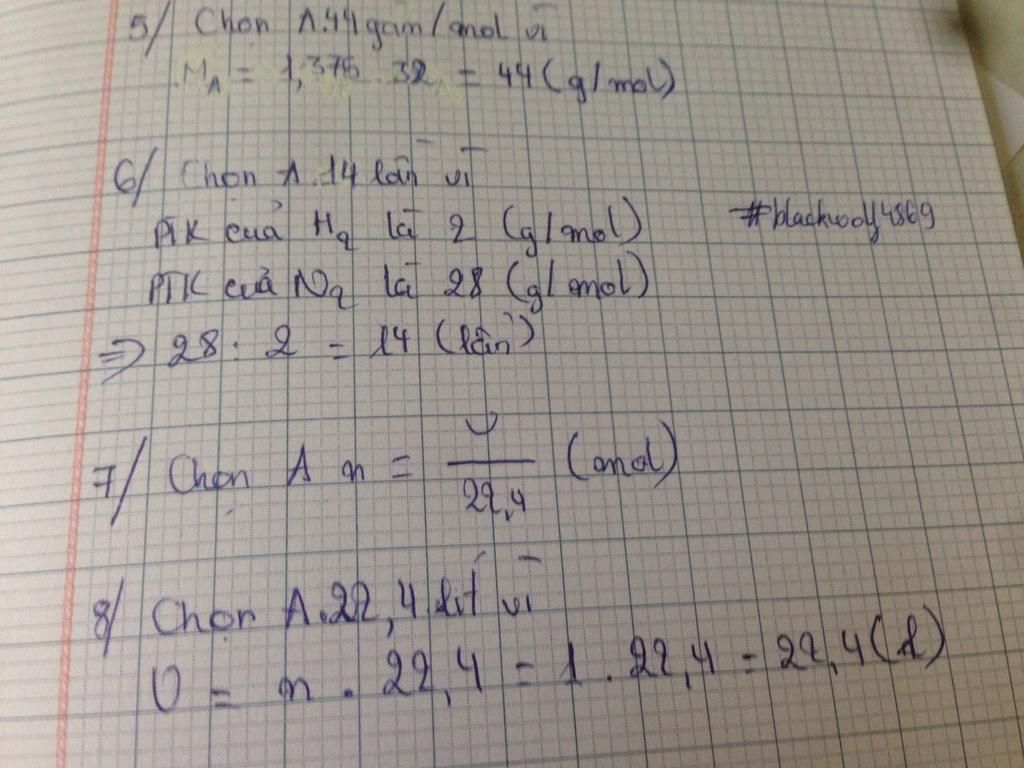 5/ Chọn A.44gam/mol vì
M_A = 1,375 . 32 = 44(g/mol)
6/ Chọn A.14 lần vì
PTK của H₂ là 2 (g/mol)
#blackwooy4869
PTK của N₂ là 28 (g/mol)
=> 28 : 2 = 14 (lần)
7/ Chọn A n = V/22,4 (mol)
8/ Chọn A.22,4 lít vì
V = n . 22,4 = 1 . 22,4 = 22,4(l)